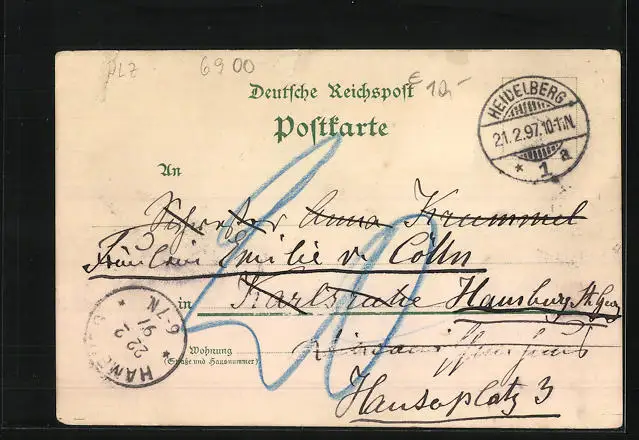 PLZ 6900
Deutsche Reichspost € 10,-
Postkarte
HEIDELBERG
21.2.97.10-11N.
* 1 a
An
Schwester Anna Krummel
Fräulein Emilie v. Cölln
in Karlsruhe Hamburg St. Georg
Wohnung
(Straße und Hausnummer)
Hansaplatz 3
HAMBURG
22 2
97
6-7N
*
20